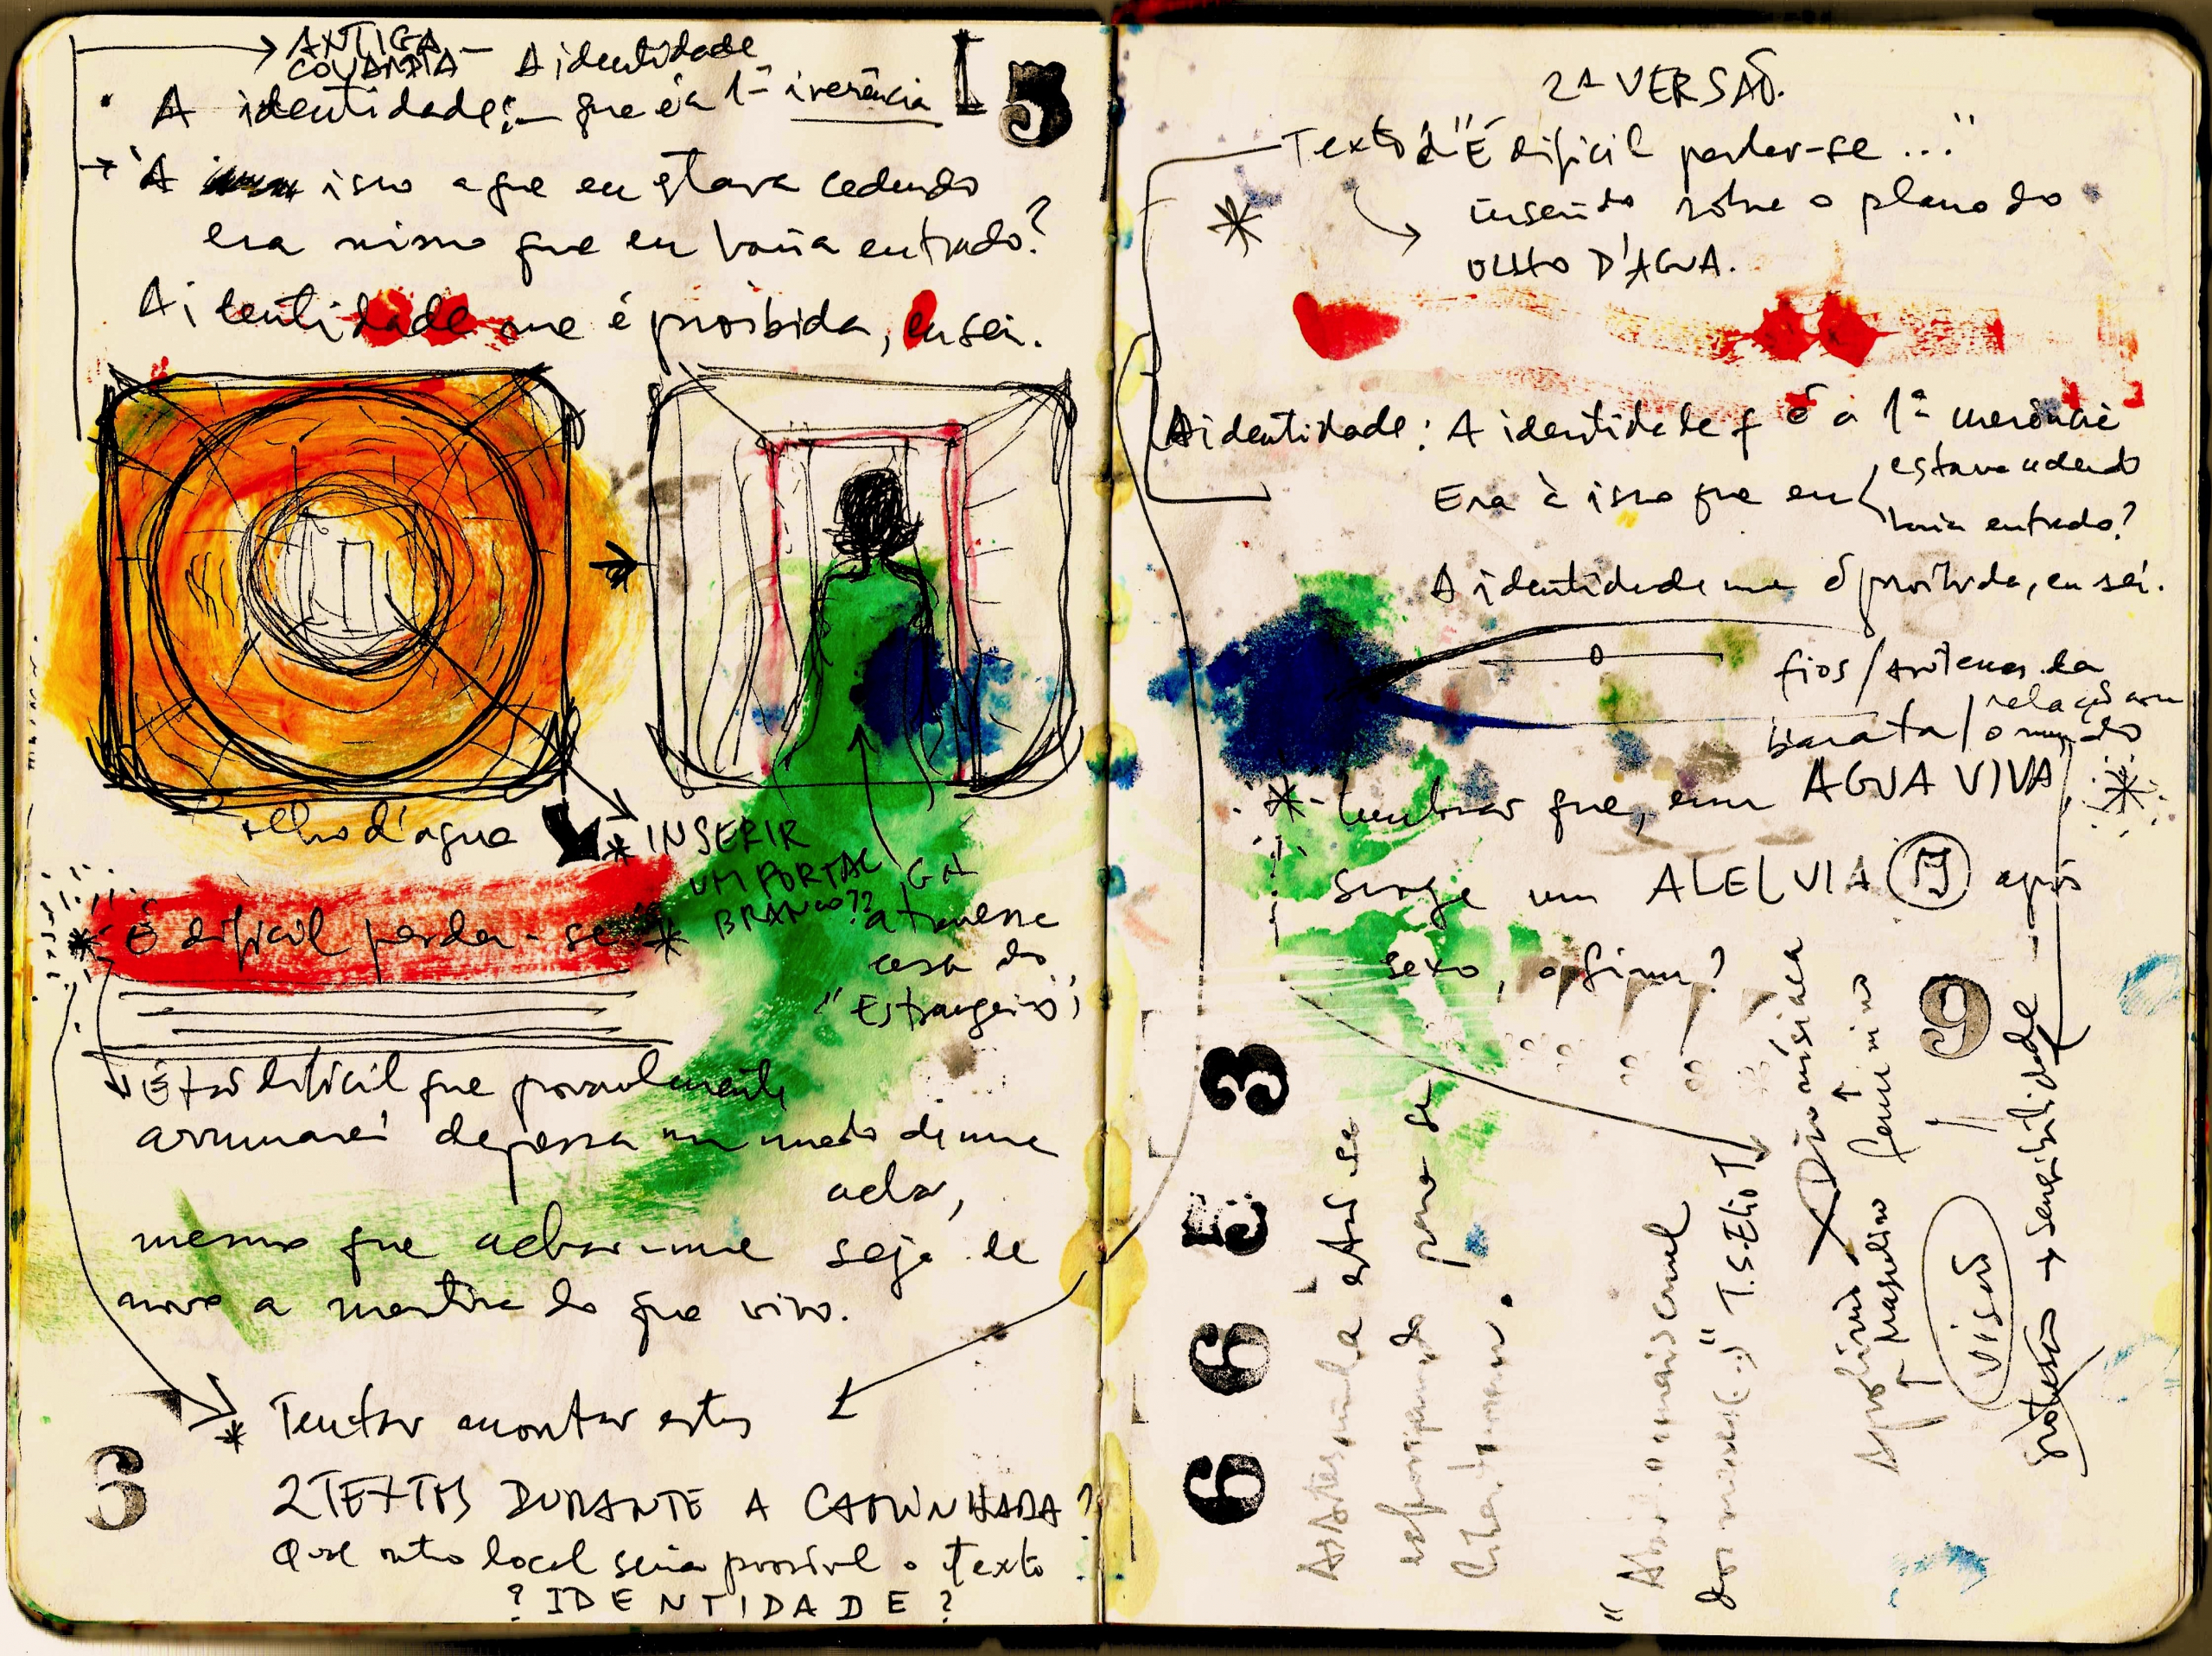 ANTIGA
COVARDIA — A identidade
A identidade: — que é a 1ª inerência
5
À isso a que eu estava cedendo
era nisso que eu havia entrado?
A identidade me é proibida, eu sei.
olho d'agua
* INSERIR
UM PORTAL
BRANCO??
GH
atravessa
casa do
"Estrangeiro"
* É dificil perder-se *
É tão dificil que provavelmente
arrumarei depressa um modo de me
achar,
mesmo que achar-me seja de
novo a mentira de que vivo.
* Tentar montar estes
2 TEXTOS DURANTE A CAMINHADA?
Que outro local seria possível o texto
? IDENTIDADE ?
6
2ª VERSÃO.
Texto d "É dificil perder-se ..."
* inserido sobre o plano do
OLHO D'AGUA.
A identidade: A identidade q é a 1ª inerência
Era à isso que eu
estava cedendo
havia entrado?
A identidade me é proibida, eu sei.
fios/antenas da
barata/relação com
o mundo
* lembrar que, em AGUA VIVA, *
surge um ALELUIA após
sexo, o fim?
3
5
6
6
9
As Artes
está se
para se
"Abril o mais cruel
dos meses (...)" T.S. Eliot
Dionisíaca
feminino
masculino
visão
→ sensibilidade